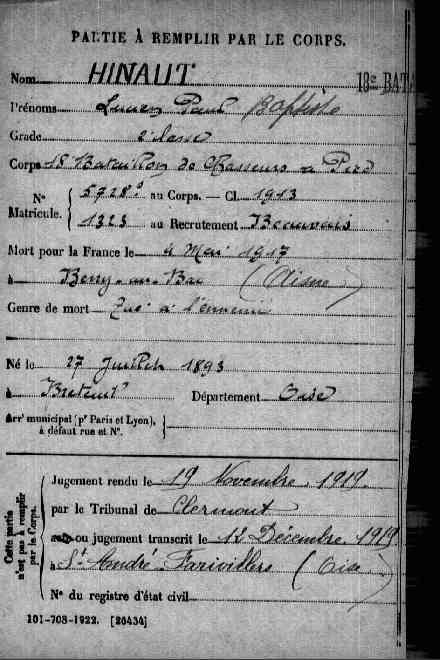 PARTIE À REMPLIR PAR LE CORPS.
Nom HINAUT
18e BATA
Prénoms Lucien Paul Baptiste
Grade 2e classe
Corps 18 Bataillon de Chasseurs à Pied
No Matricule. { 5728 au Corps. — Cl. 1913
1323 au Recrutement Beauvais
Mort pour la France le 4 Mai 1917
à Berry-au-Bac (Aisne)
Genre de mort Tué à l'ennemi
Né le 27 Juillet 1893
à Breteuil Département Oise
Arrt municipal (pr Paris et Lyon), à défaut rue et No. }
Cette partie n'est pas à remplir par le Corps.
Jugement rendu le 19 Novembre 1919.
par le Tribunal de Clermont
ou jugement transcrit le 12 Décembre 1919
à St André Farivillers (Oise)
No du registre d'état civil
101-708-1922. [26434]